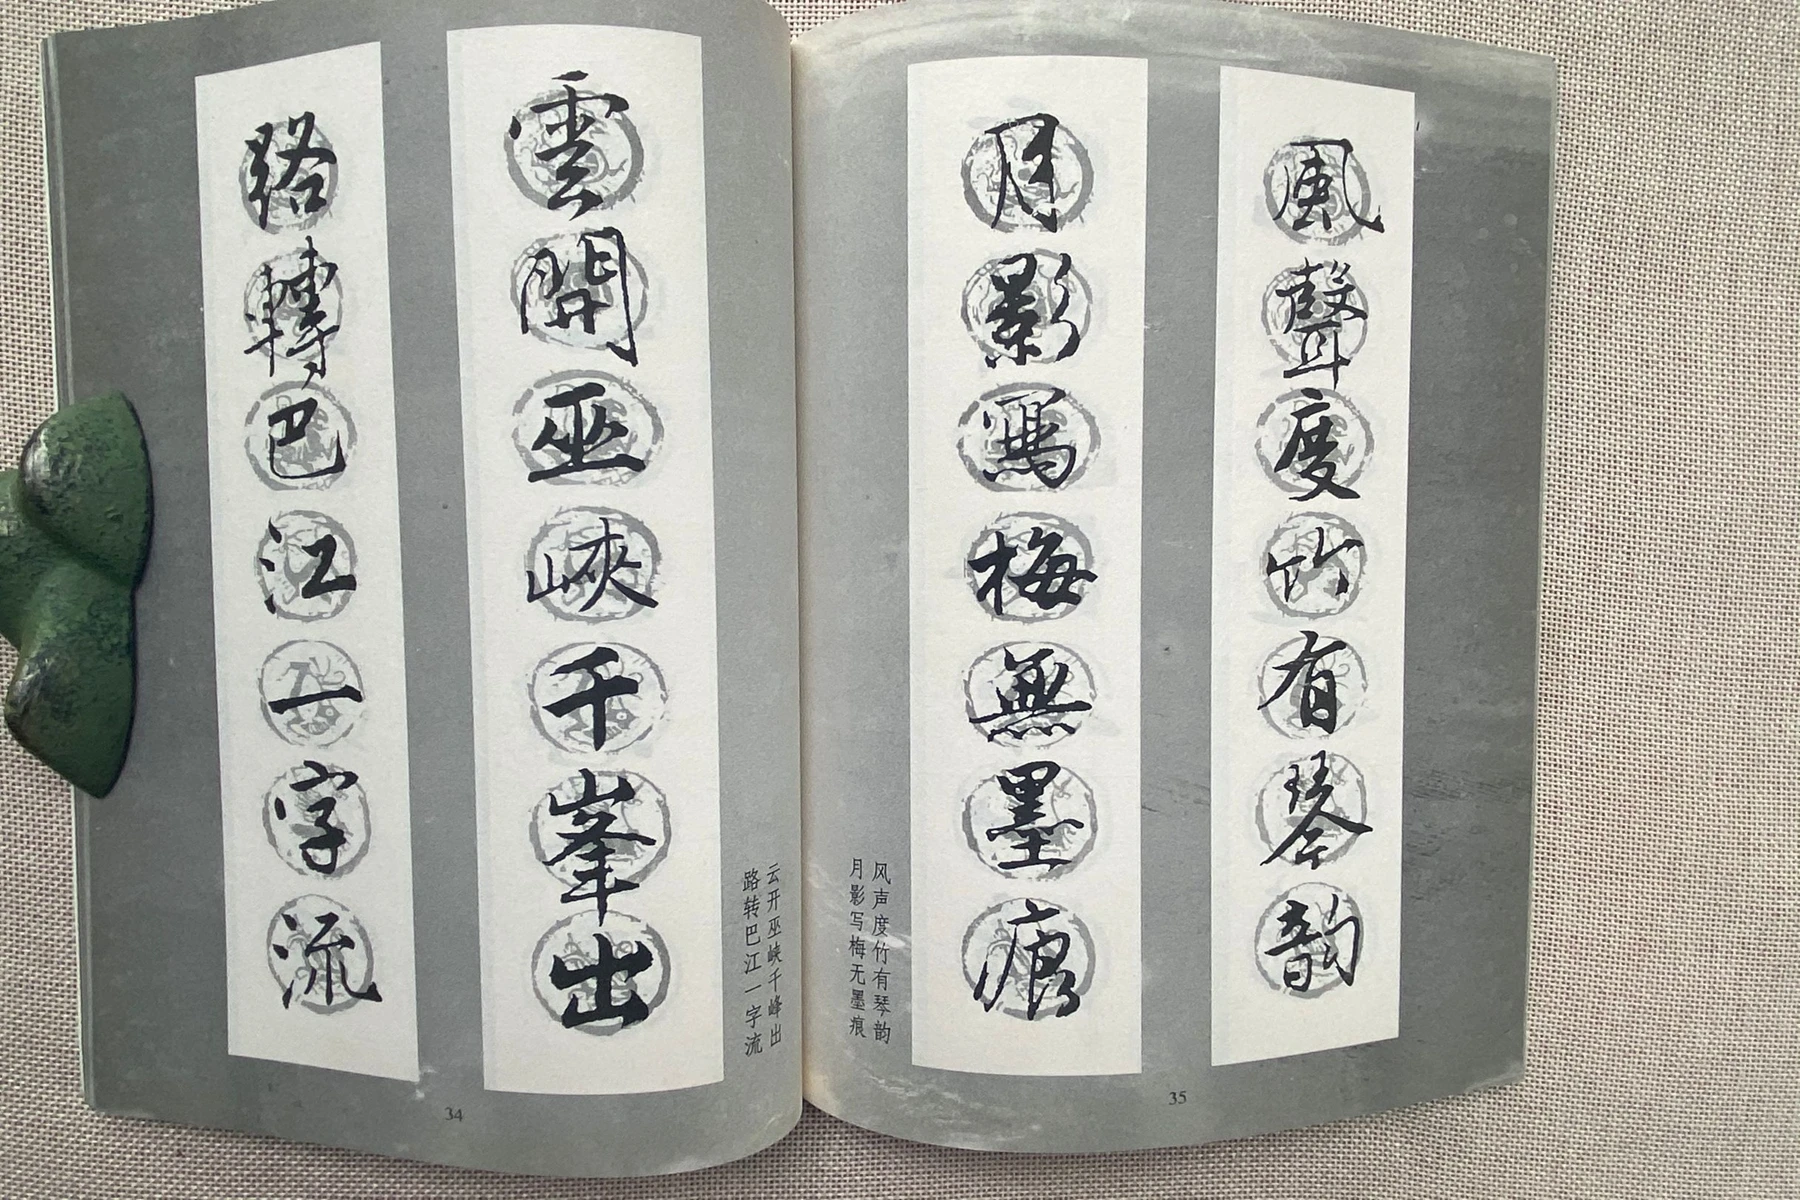 風聲度竹有琴韵
月影寫梅無墨痕
风声度竹有琴韵
月影写梅无墨痕
35
雲開巫峽千峯出
路轉巴江一字流
云开巫峡千峰出
路转巴江一字流
34